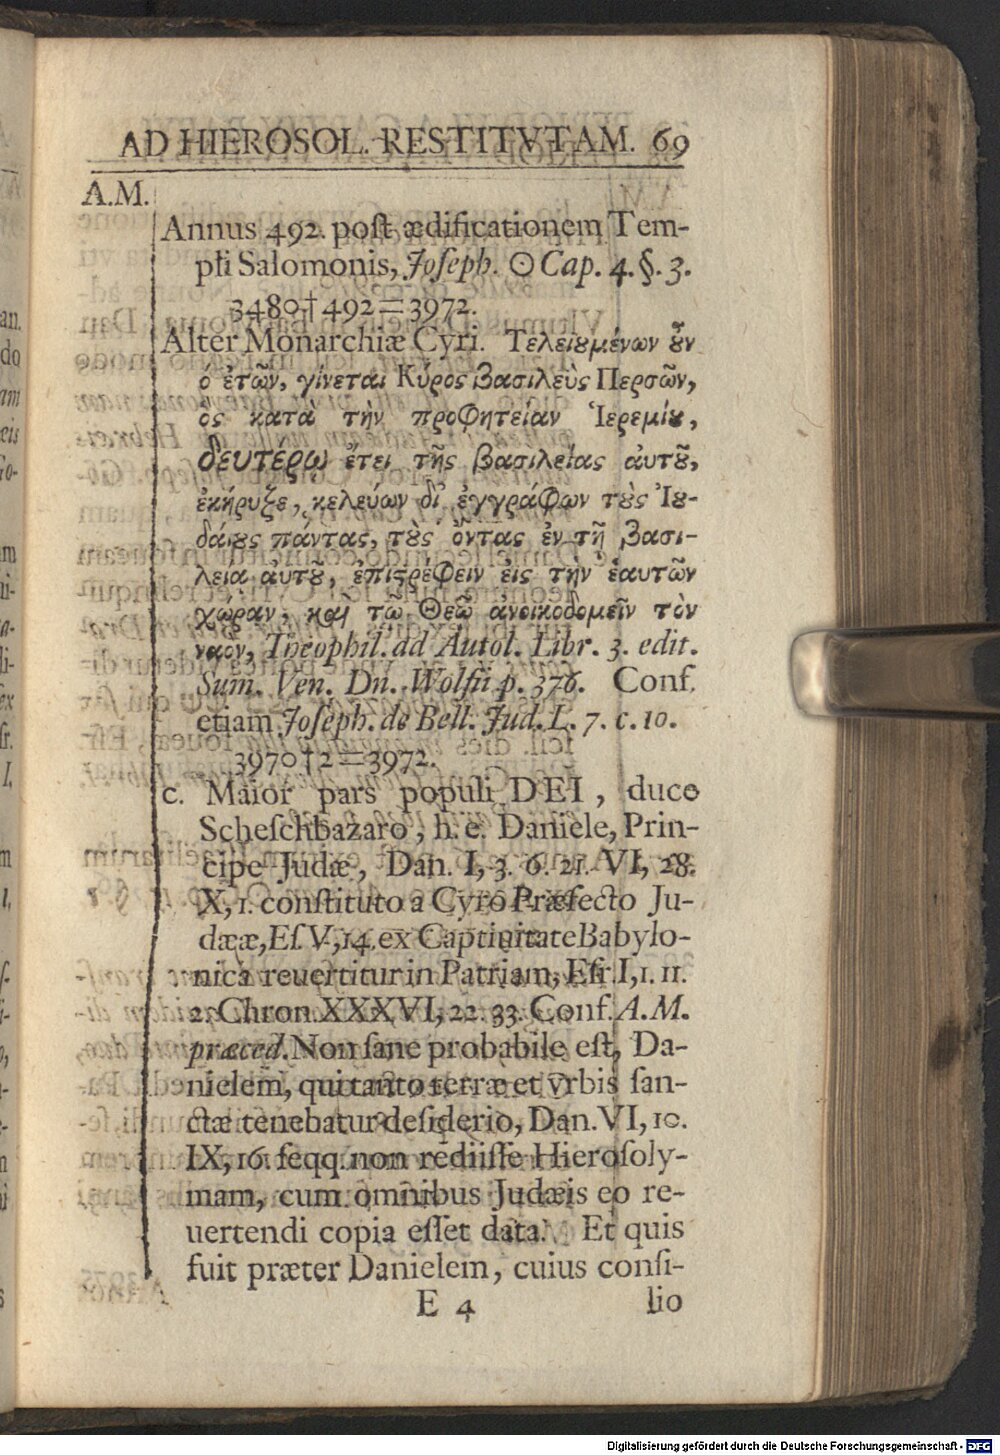 AD HIEROSOL. RESTITVTAM. 69
A.M.
Annus 492. poſt ædificationem Tem-
pli Salomonis, Joſeph. ☉ Cap. 4. §. 3.
3480†492=3972.
Alter Monarchiæ Cyri. Τελειȣμένων ȣ̓͂ν
ό ἐτῶν, γίνεται Κῦρος βασιλεὺς Περσῶν,
ὃς κατὰ τὴν προφητείαν Ἱερεμίȣ,
δευτέρῳ ἔτει τῆς βασιλείας ἀυτȣ͂,
ἐκήρυξε, κελεύων δἰ ἐγγράφων τȣ̀ς Ἰȣ-
δάιȣς πάντας, τȣ̀ς ὄντας ἐν τῇ βασι-
λεία ἀυτȣ͂, ἐπιϛρέφειν ἐις τὴν ἑαυτῶν
χώραν, καὶ τῶ Θεῶ ἀνοικοδομεῖν τὸν
ναὸν, Theophil. ad Autol. Libr. 3. edit.
Sum. Ven. Dn. Wolfii p. 376. Conf.
etiam Joſeph. de Bell. Jud. L. 7. c. 10.
3970†2=3972.
c. Maior pars populi DEI, duce
Scheſchbazaro, h. e. Daniele, Prin-
cipe Judæ, Dan. I, 3. 6. 21. VI, 28.
X, 1. conſtituto a Cyro Præfecto Ju-
dææ, Eſ. V, 14. ex Captiuitate Babylo-
nica reuertitur in Patriam, Eſr. I, 1. 11.
2. Chron. XXXVI, 22. 33. Conf. A. M.
præced. Non ſane probabile eſt, Da-
nielem, qui tanto terræ et vrbis ſan-
ctæ tenebatur deſiderio, Dan. VI, 10.
IX, 16. ſeqq. non rediiſſe Hieroſoly-
mam, cum omnibus Judæis eo re-
uertendi copia eſſet data. Et quis
fuit præter Danielem, cuius conſi-
E 4 lio
Digitalisierung gefördert durch die Deutsche Forschungsgemeinschaft - DFG